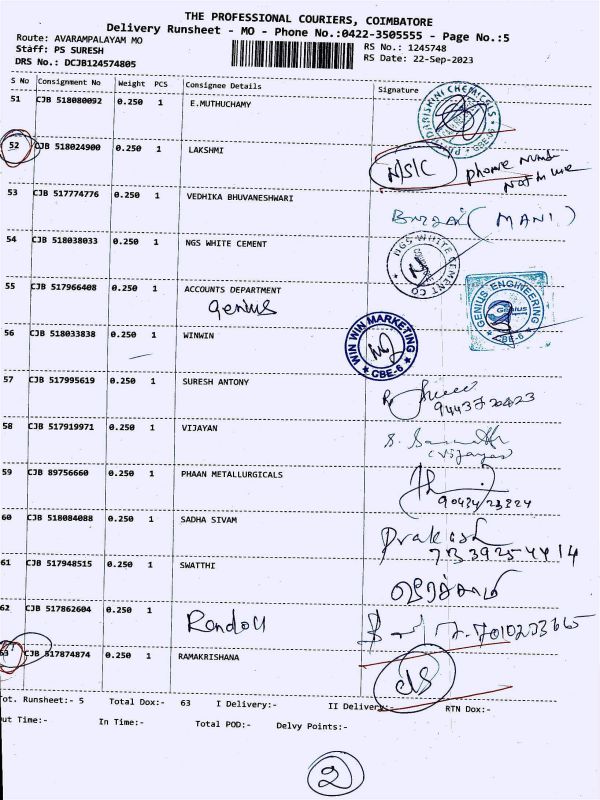 THE PROFESSIONAL COURIERS, COIMBATORE
Delivery Runsheet - MO - Phone No.:0422-3505555 - Page No.:5
Route: AVARAMPALAYAM MO RS No.: 1245748
Staff: PS SURESH RS Date: 22-Sep-2023
DRS No.: DCJB124574805
S No Consignment No Weight PCS Consignee Details Signature
51 CJB 518080092 0.250 1 E.MUTHUCHAMY
52 CJB 518024900 0.250 1 LAKSHMI
N/S/C phone number not in use
53 CJB 517774776 0.250 1 VEDHIKA BHUVANESHWARI
(MANI)
54 CJB 518038033 0.250 1 NGS WHITE CEMENT
NGS WHITE CEMENT CO
55 CJB 517966408 0.250 1 ACCOUNTS DEPARTMENT
Genius
GENIUS ENGINEERING
Genius
CBE-6
56 CJB 518033838 0.250 1 WINWIN
WIN WIN MARKETING
CBE-6
57 CJB 517995619 0.250 1 SURESH ANTONY
58 CJB 517919971 0.250 1 VIJAYAN
(Vijayan)
59 CJB 89756660 0.250 1 PHAAN METALLURGICALS
60 CJB 518084088 0.250 1 SADHA SIVAM
Prakash
61 CJB 517948515 0.250 1 SWATTHI
62 CJB 517862604 0.250 1
63 CJB 517874874 0.250 1 RAMAKRISHANA
Tot. Runsheet:- 5 Total Dox:- 63 I Delivery:- II Delivery:- RTN Dox:-
Out Time:- In Time:- Total POD:- Delvy Points:-
2